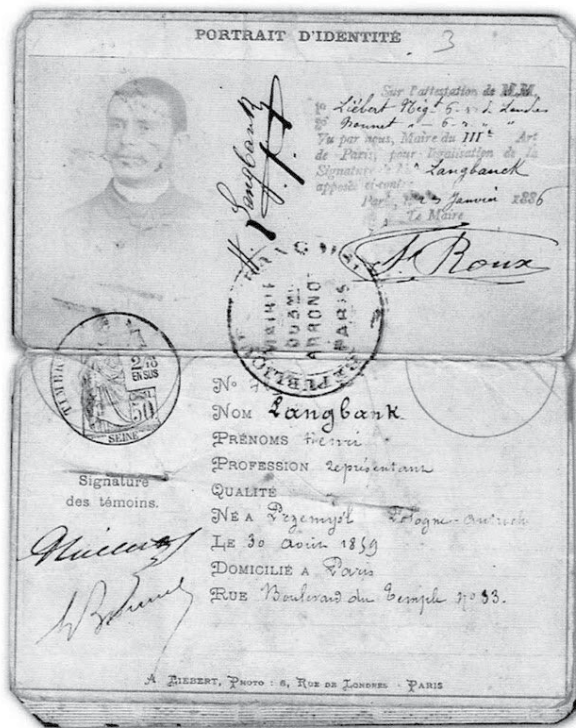 PORTRAIT D'IDENTITÉ
3
Sur l'attestation de M.M.
1º Liébert Négt 6 r. d. Londres
2º Bonnet " - 6 r. " "
Vu par nous, Maire du IIIe Art
de Paris, pour légalisation de la
Signature de Mr Langbanck
apposée ci-contre
Paris, le Janvier 1886
Le Maire
H. Langbank
St Roux
MAIRIE
DU 3ME
ARRONDT
PARIS
TIMBRE
2/10
EN SUS
50
SEINE
Nº
NOM Langbank
PRÉNOMS Henri
PROFESSION représentant
QUALITÉ
NÉ A Przemysl Pologne-Autrich
LE 30 Août 1859
DOMICILIÉ A Paris
RUE Boulevard du Temple nº 33.
Signature
des témoins.
A. LIÉBERT, PHOTO : 6, RUE DE LONDRES - PARIS